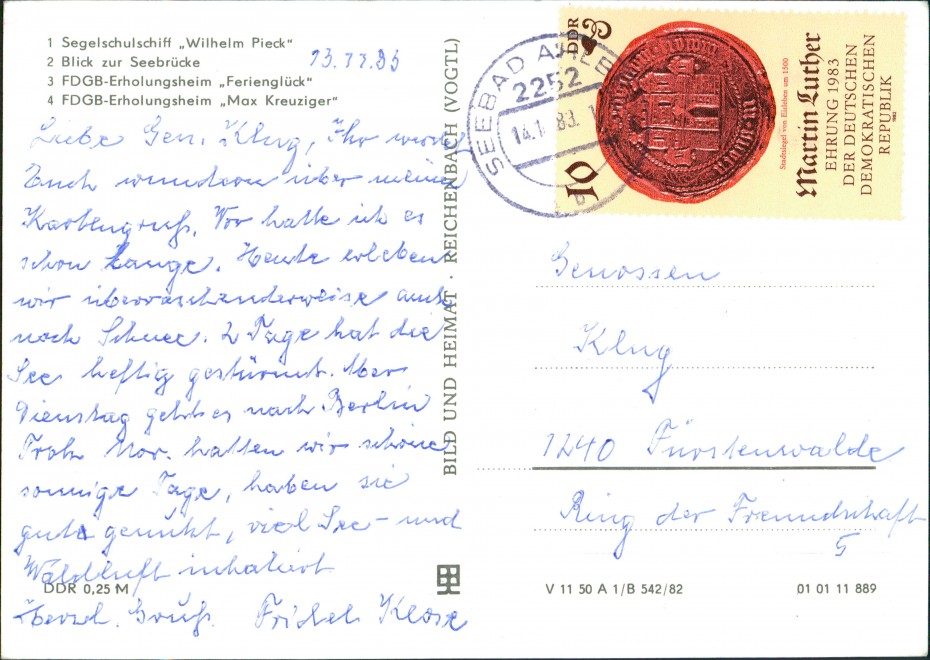 1 Segelschulschiff „Wilhelm Pieck"
2 Blick zur Seebrücke
3 FDGB-Erholungsheim „Ferienglück"
4 FDGB-Erholungsheim „Max Kreuziger"
13.11.83
Liebe Gen. Klug, Ihr werdet
Euch wundern über meinen
Kartengruß. Vor hatte ich es
schon lange. Heute erleben
wir überraschenderweise auch
noch Schnee. 2 Tage hat die
See heftig gestürmt. Aber
Dienstag geht es nach Berlin
Trotz Nov. hatten wir schöne
sonnige Tage, haben sie
gut genützt, viel See- und
Waldluft inhaliert
Herzl. Gruß. Fridel Klose
DDR 0,25 M
BILD UND HEIMAT · REICHENBACH (VOGTL)
SEEBAD
2252
DDR
10
Stadtsiegel von Eisleben um 1500
Martin Luther
EHRUNG 1983
DER DEUTSCHEN
DEMOKRATISCHEN
REPUBLIK
1982
Genossen
Klug
1240 Fürstenwalde
Ring der Freundschaft
5
V 11 50 A 1/B 542/82
01 01 11 889